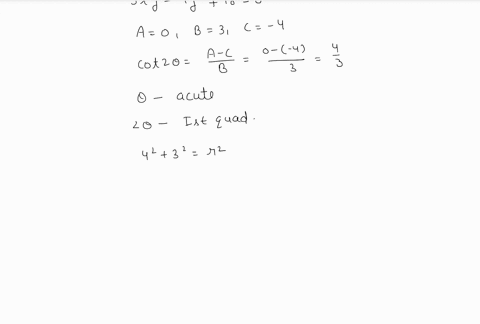 A = 0, B = 3, C = -4
cot2θ = A-C/B = 0-(-4)/3 = 4/3
θ - acute
2θ - Ist quad.
4² + 3² = r²